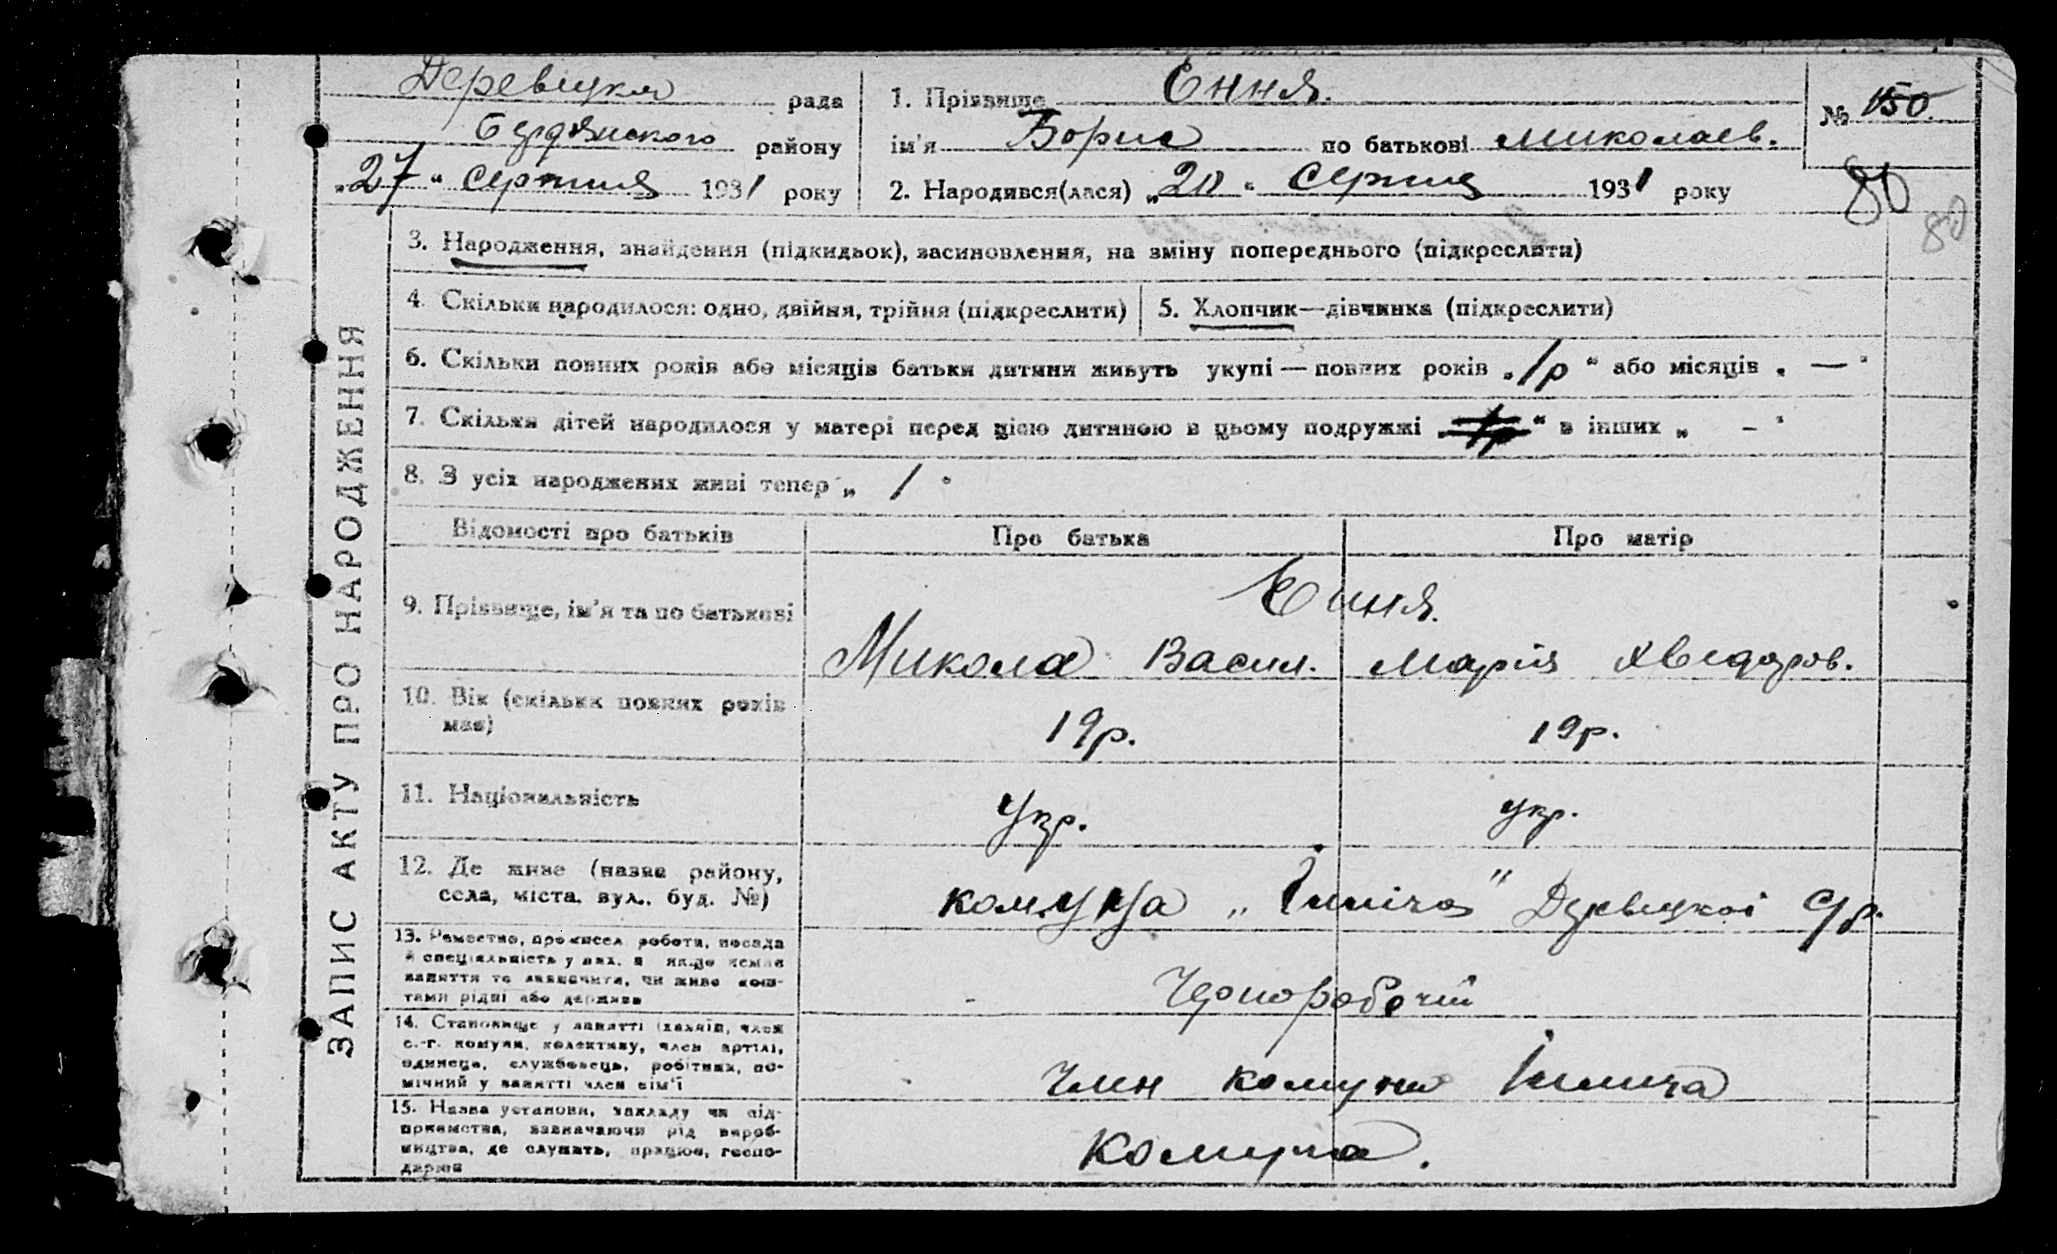 Деревецка рада
Бердянского району
„27“ серпня 1931 року
1. Прізвище Єння.
ім'я Борис по батькові Миколаєв.
2. Народився(лася) „20“ серпня 1931 року
№ 150
80
80
ЗАПИС АКТУ ПРО НАРОДЖЕННЯ
3. Народження, знайдення (підкидьок), засиновлення, на зміну попереднього (підкреслити)
4. Скільки народилося: одно, двійня, трійня (підкреслити)
5. Хлопчик—дівчинка (підкреслити)
6. Скільки повних років або місяців батьки дитини живуть укупі — повних років „1р“ або місяців „—“
7. Скільки дітей народилося у матері перед цією дитиною в цьому подружжі „1р“ в інших „-“
8. З усіх народжених живі тепер „1“
Відомості про батьків Про батька Про матір
9. Прізвище, ім'я та по батькові
Єння.
Микола Васил. Марія Хведоров.
10. Вік (скільки повних років має)
19р. 19р.
11. Національність
Укр. укр.
12. Де живе (назва району,
села, міста, вул., буд. №)
комуна „Ілліча“ Деревецкоі с/р.
13. Ремество, промисел робота, посада
й спеціяльність у них, а якщо немає
заняття то зазначити, чи живе кош-
тами рідні або держави
Чорноробочій
14. Становище у занятті (хазяїн, член
с.-г. комуни, колективу, член артілі,
одинець, службовець, робітник, по-
мічний у занятті член сім'ї
член комуни Ілліча
15. Назва установи, закладу чи під-
приємства, зазначаючи рід вироб-
ництва, де служить, працює, госпо-
дарює
Комуна.